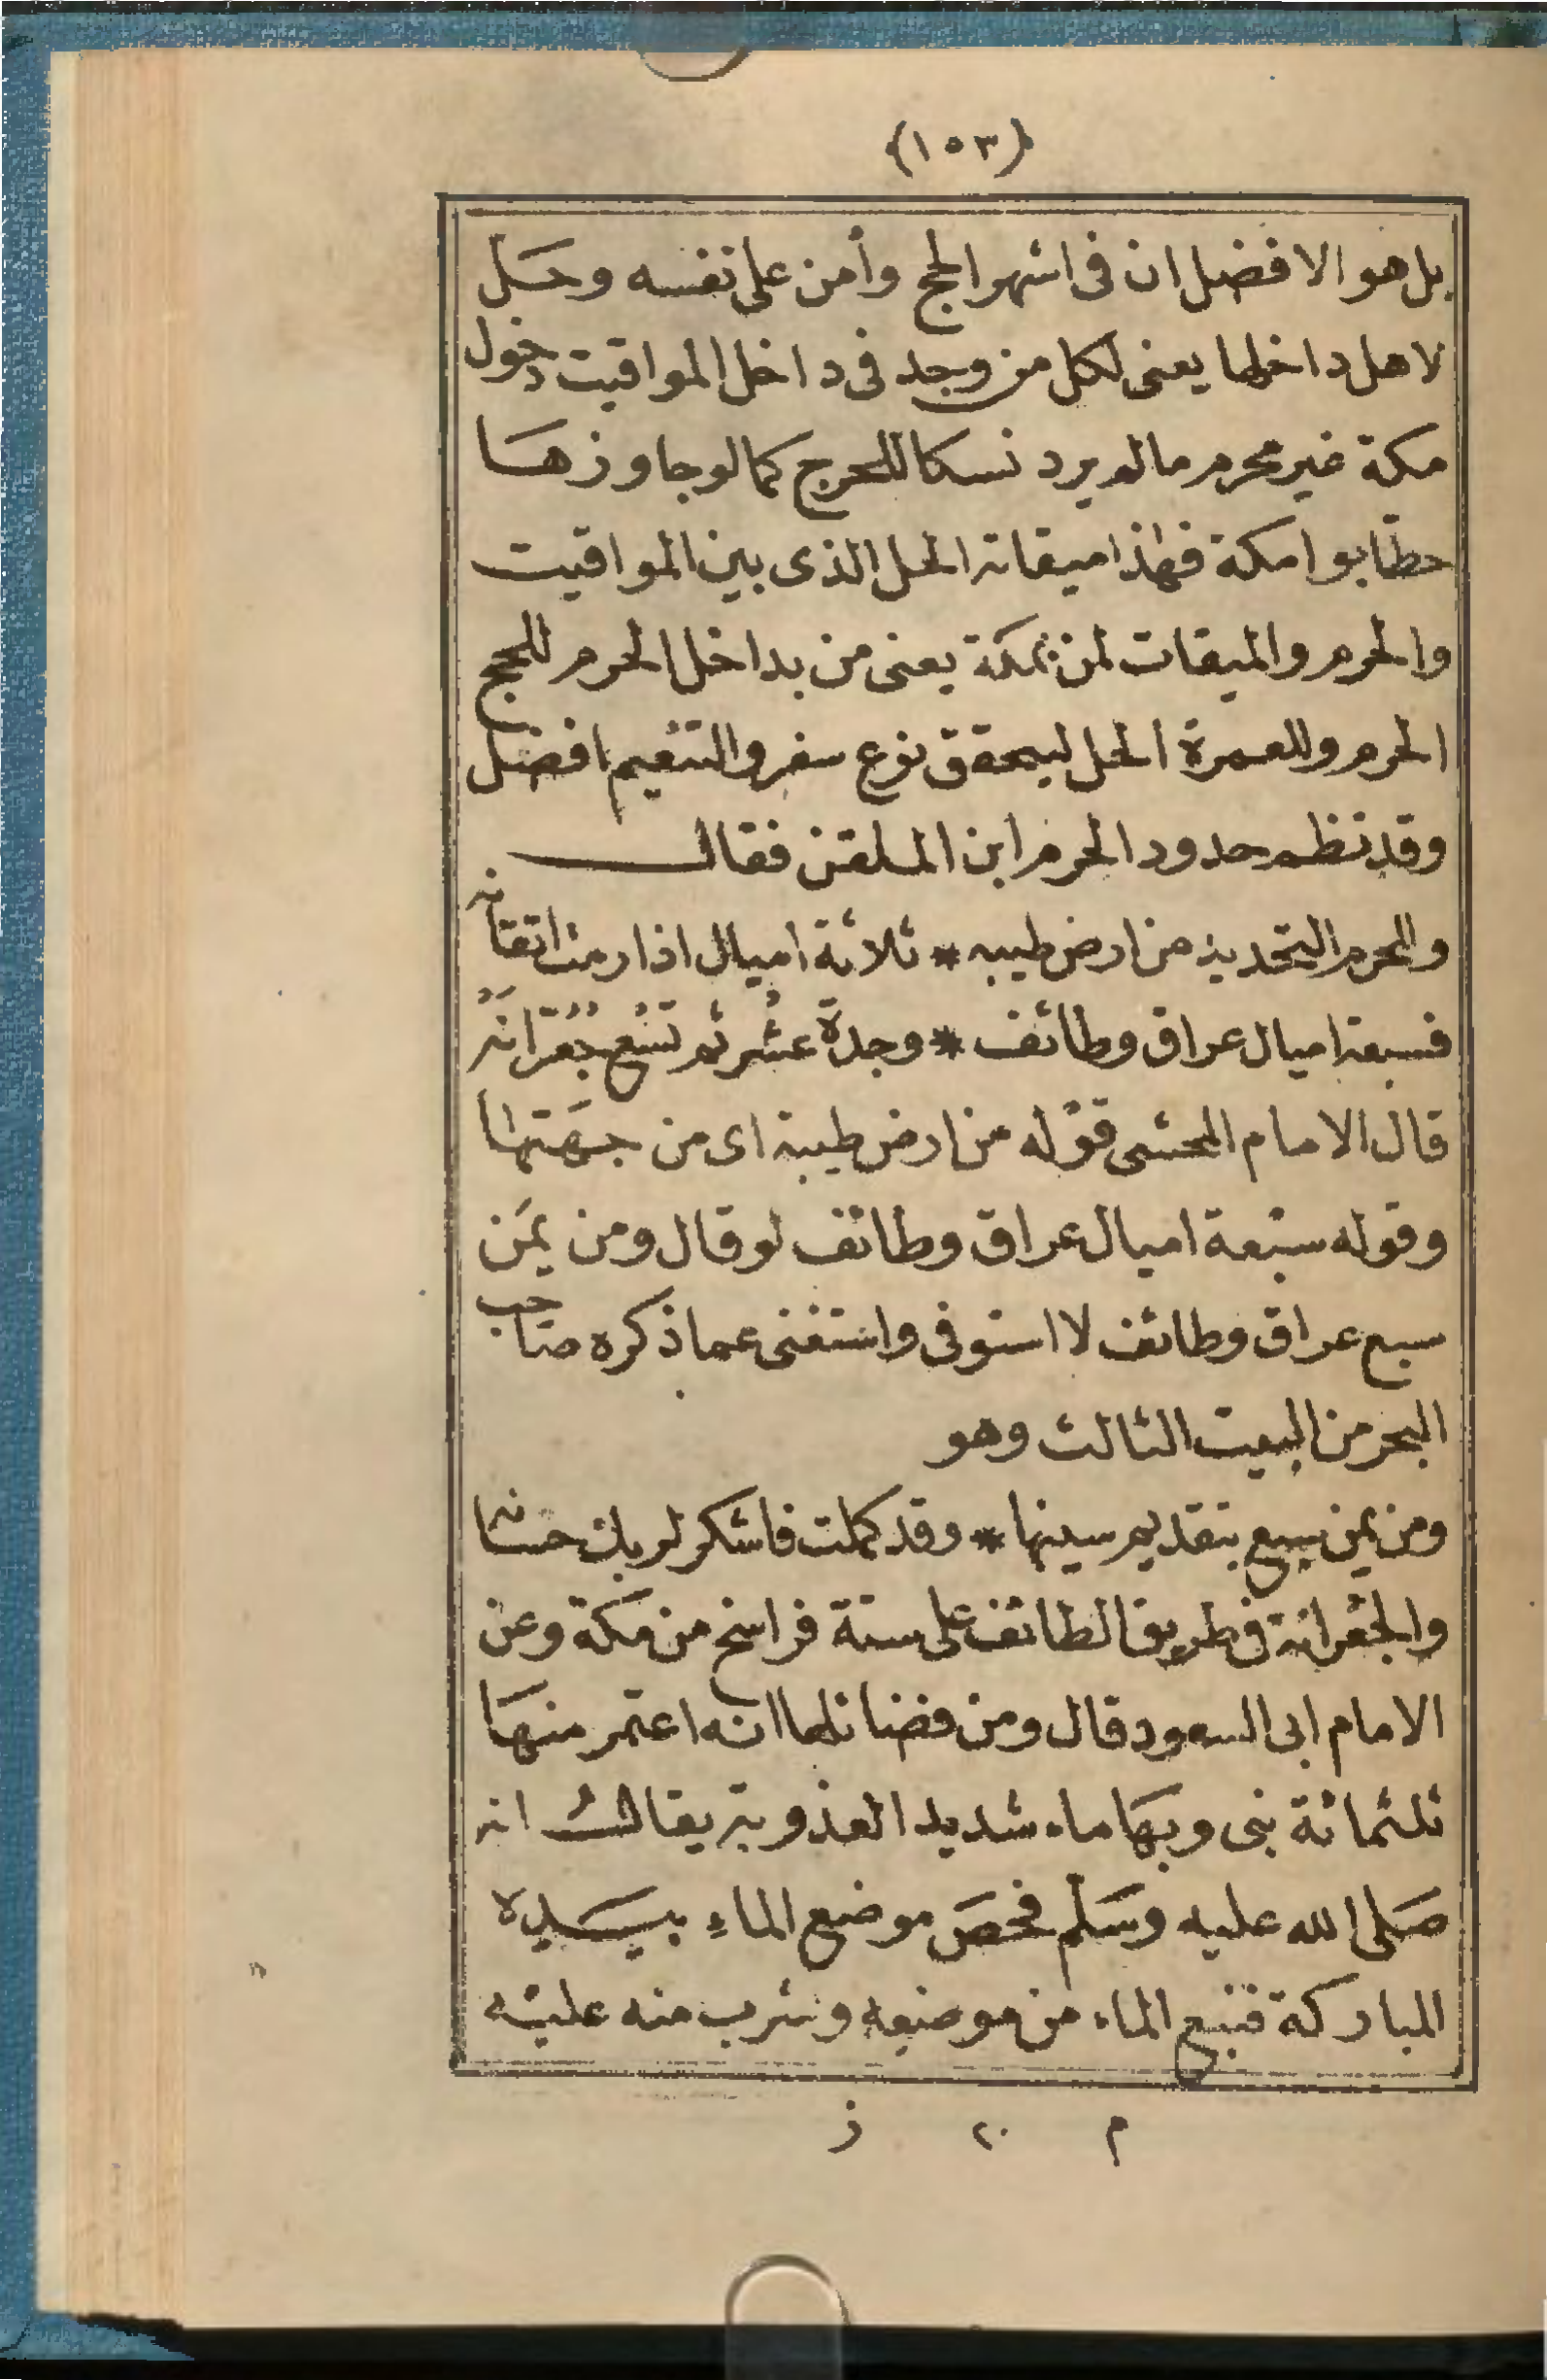 (١٥٣)
بل هو الافضل ان فى اشهر الحج وأمن على نفسه وحل
لاهل داخلها يعنى لكل من وجد فى داخل المواقيت دخول
مكة غير محرم مالم يرد نسكا للحرج كما لو جاوزها
حطّابوا مكة فهذا ميقاته الحل الذى بين المواقيت
والحرم والميقات لمن بمكة يعنى من بداخل الحرم للحج
الحرم وللعمرة الحل ليحقق نوع سفر والتنعيم افضل
وقد نظم حدود الحرم ابن الملقن فقال
وللحرم التحديد من ارض طيبه * ثلاثة اميال اذا رمت اتقانه
فسبعة اميال عراق وطائف * وجدة عشر ثم تسع جعرانه
قال الامام المحشى قوله من ارض طيبة اى من جهتها
وقوله سبعة اميال عراق وطائف لو قال ومن يمن
سبع عراق وطائف لا استوفى واستغنى عما ذكره صاحب
البحر من البيت الثالث وهو
ومن يمن سبع بتقديم سينها * وقد كملت فاشكر لربك احسانه
والجعرانة فى طريق الطائف على ستة فراسخ من مكة وعن
الامام ابى السعود قال ومن فضائلها انه اعتمر منها
ثلثمائة نبى وبها ماء شديد العذوبة يقال انه
صلى الله عليه وسلم فحص موضع الماء بيده
المباركة فنبع الماء من موضعه وشرب منه عليه
م ٢٠ ز